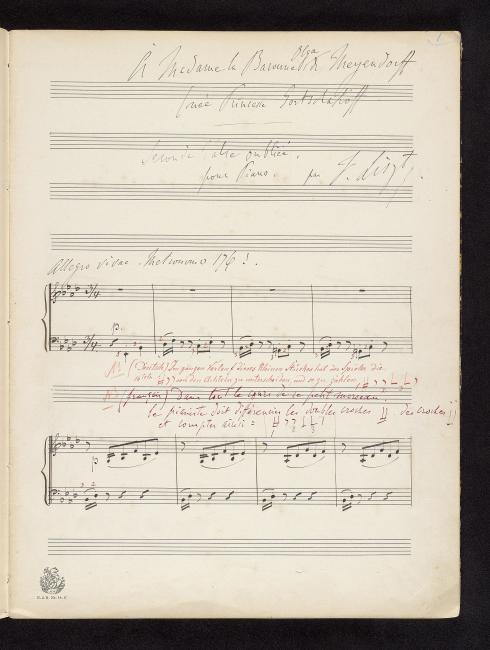 1
À Madame la Baronne Olga de Meyendorff
(née Princesse Gortschakoff
Seconde Valse oubliée.
pour Piano. par F. Liszt.
Allegro vivace. Metronom 176 !.
3/4
p.
3/4
N.B. (Deutsch) Im ganzen Verlauf dieses kleinen Stückes hat der Spieler die
von den Achteln zu unterscheiden, und so zu zählen,
N.B. (français) Dans tout le cours de ce petit morceau.
le pianiste doit différencier les doubles croches des croches
et compter ainsi =
p